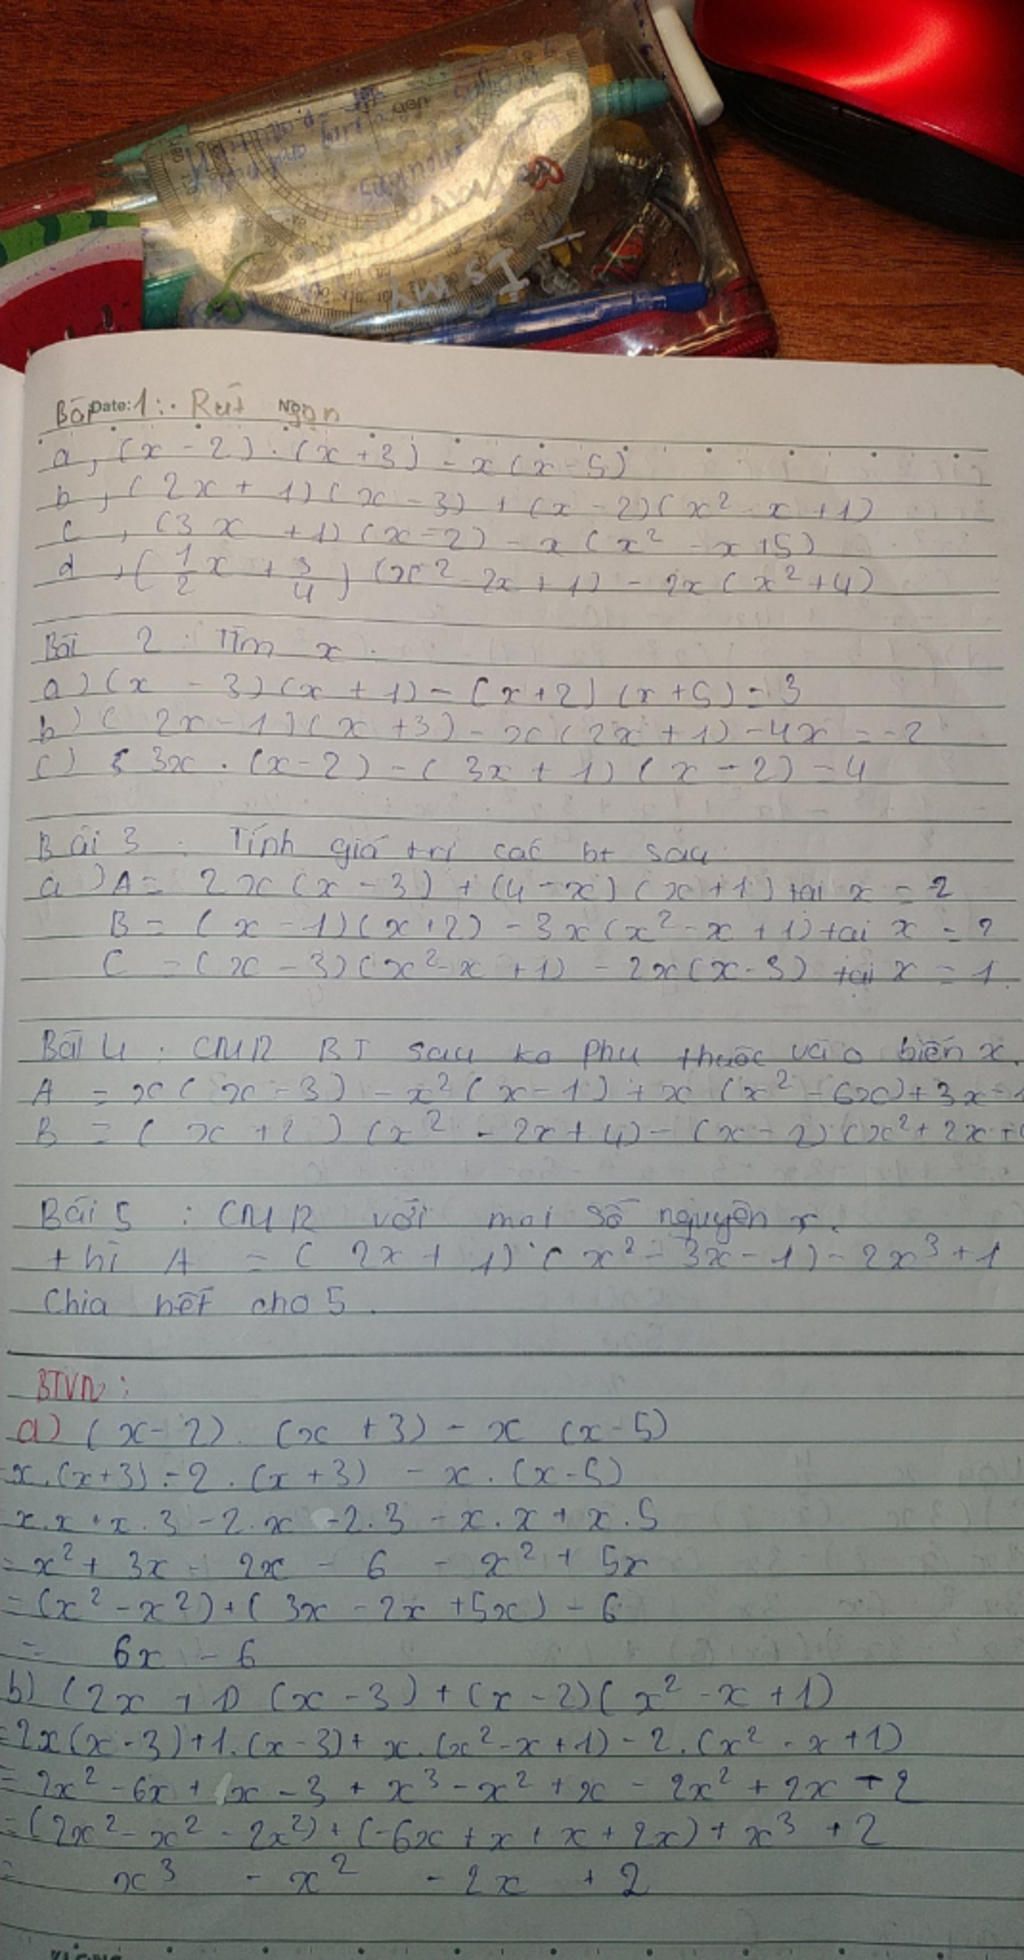 IS MY
Date: Ngọn
Bài 1: Rút
a, (x - 2) . (x + 3) - x (x - 5)
b, (2x + 1) (x - 3) + (x - 2) (x² - x + 1)
c, (3x + 1) (x - 2) - x (x² - x + 5)
d, (1/2 x + 3/4) (x² - 2x + 1) - 2x (x² + 4)
Bài 2 : Tìm x.
a) (x - 3) (x + 1) - (x + 2) (x + 5) = 3
b) (2x - 1) (x + 3) - x (2x + 1) - 4x = -2
c) 3x . (x - 2) - (3x + 1) (x - 2) = 4
Bài 3 : Tính giá trị các bt sau
a) A = 2x (x - 3) + (4 - x) (x + 1) tại x = 2
B = (x - 1) (x + 2) - 3x (x² - x + 1) tại x = 2
C = (x - 3) (x² - x + 1) - 2x (x - 3) tại x = 1.
Bài 4 : CMR BT sau ko phụ thuộc vào biến x.
A = x (x - 3) - x² (x - 1) + x (x² - 6x) + 3x - 1
B = (x + 2) (x² - 2x + 4) - (x - 2) (x² + 2x +
Bài 5 : CMR với mọi số nguyên x.
thì A = (2x + 1) . (x² - 3x - 1) - 2x³ + 1
Chia hết cho 5.
BTVN :
a) (x - 2) . (x + 3) - x (x - 5)
x.(x + 3) - 2 . (x + 3) - x . (x - 5)
x.x + x.3 - 2.x - 2.3 - x.x + x.5
= x² + 3x - 2x - 6 - x² + 5x
= (x² - x²) + (3x - 2x + 5x) - 6
= 6x - 6
b) (2x + 1) (x - 3) + (x - 2) (x² - x + 1)
= 2x (x - 3) + 1. (x - 3) + x. (x² - x + 1) - 2. (x² - x + 1)
= 2x² - 6x + x - 3 + x³ - x² + x - 2x² + 2x - 2
= (2x² - x² - 2x²) + (-6x + x + x + 2x) + x³ + 2
= x³ - x² - 2x + 2